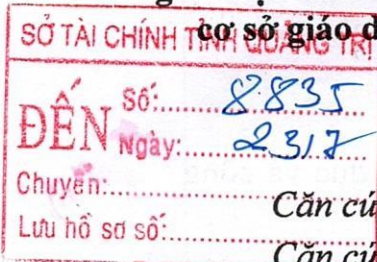 cơ sở giáo d
SỞ TÀI CHÍNH TỈNH QUẢNG TRỊ
ĐẾN
Số: 8835
Ngày: 23/7
Chuyển:
Căn cú
Lưu hồ sơ số:
Căn cú